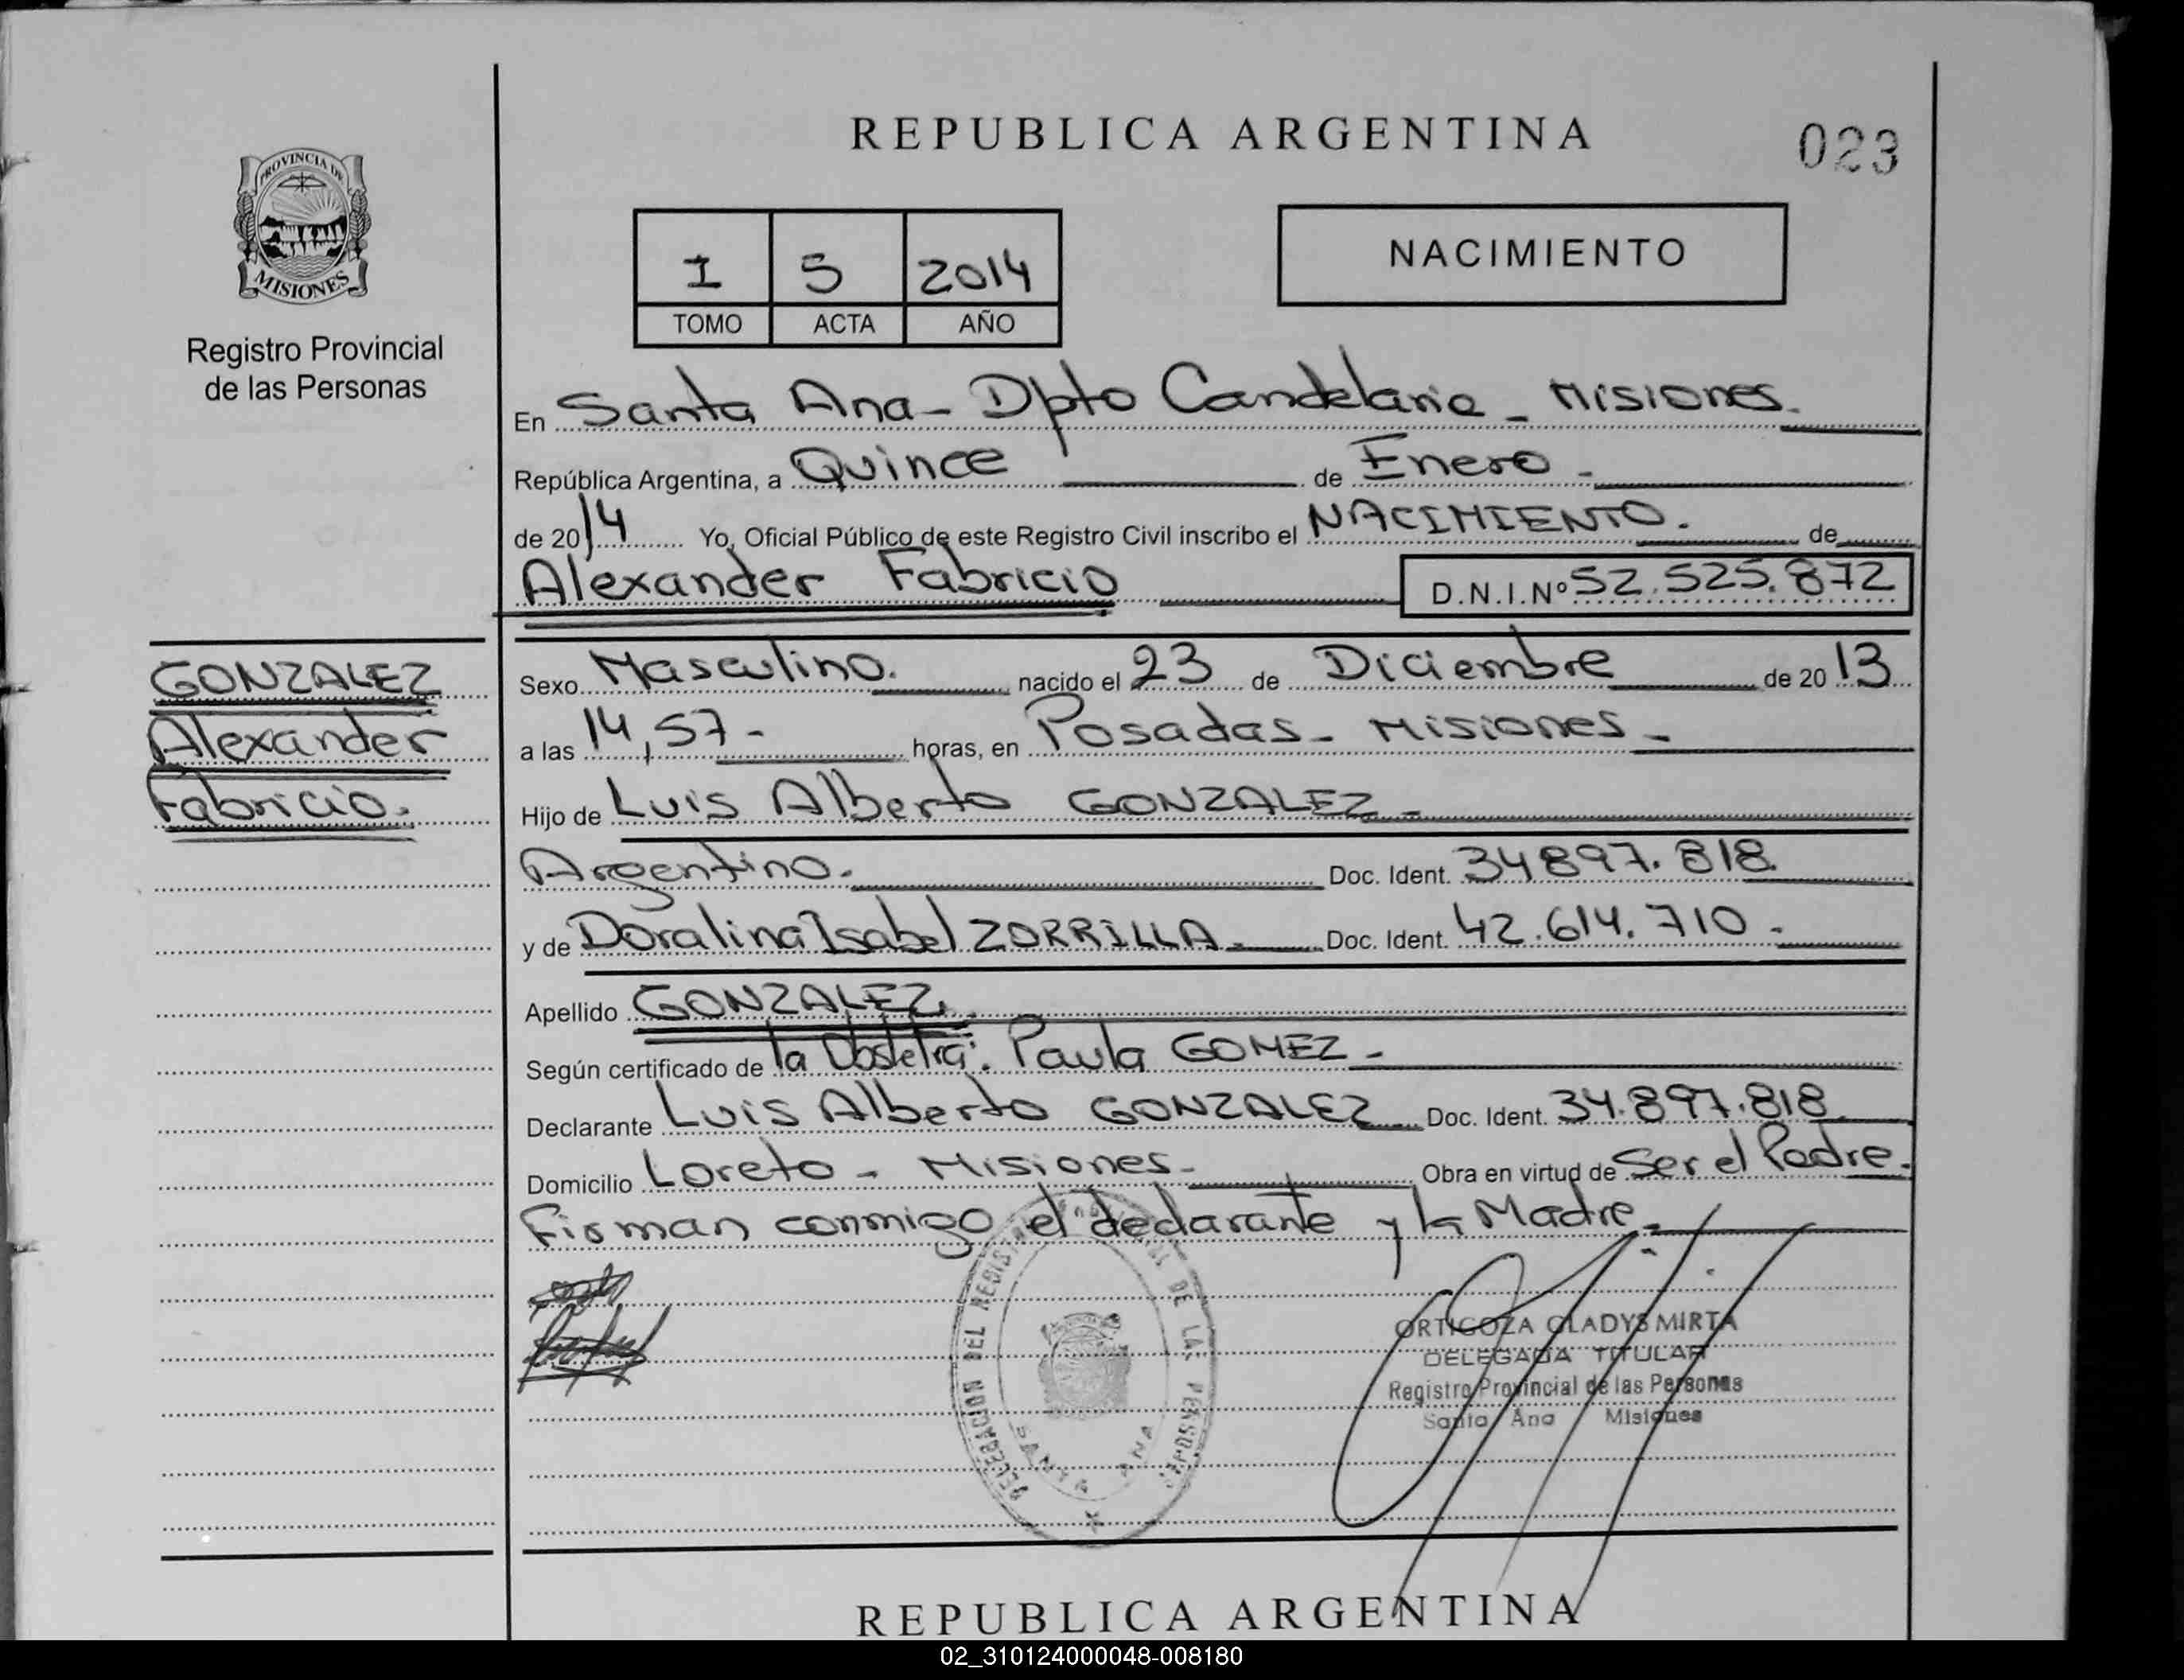 REPUBLICA ARGENTINA
023
PROVINCIA DE
MISIONES
Registro Provincial
de las Personas
I 5 2014
TOMO ACTA AÑO
NACIMIENTO
En Santa Ana - Dpto Candelaria - Misiones.
República Argentina, a Quince de Enero -
de 2014 Yo, Oficial Público de este Registro Civil inscribo el NACIMIENTO. de
Alexander Fabricio D.N.I.Nº 52.525.872
GONZALEZ
Alexander
Fabricio.
Sexo Masculino. nacido el 23 de Diciembre de 2013
a las 14,57 - horas, en Posadas - Misiones -
Hijo de Luis Alberto GONZALEZ -
Argentino. Doc. Ident. 34897.818
y de Doralina Isabel ZORRILLA - Doc. Ident. 42.614.710 -
Apellido GONZALEZ.
Según certificado de la Obstetra: Paula GOMEZ -
Declarante Luis Alberto GONZALEZ Doc. Ident. 34.897.818
Domicilio Loreto - Misiones - Obra en virtud de Ser el Padre.
Firman conmigo el declarante y la Madre -
DELEGACION DEL REGISTRO DE LAS PERSONAS
SANTA ANA
ORTIGOZA GLADYS MIRTA
DELEGADA TITULAR
Registro Provincial de las Personas
Santa Ana Misiones
REPUBLICA ARGENTINA
02_310124000048-008180